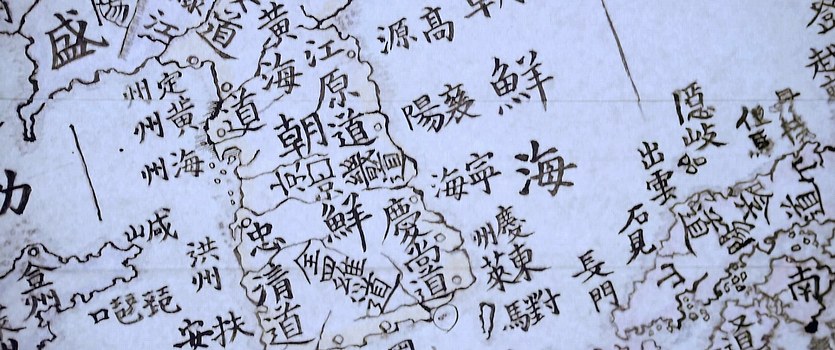 盛
黃海道
江原道
朝鮮
京
忠清道
全羅道
慶尚道
高源
襄陽
寧海
鮮海
定州
黃州
海州
洪州
扶安
琵琶口
金州
慶州
東萊
對馬
長門
石見
出雲
隱岐
但馬
南
道